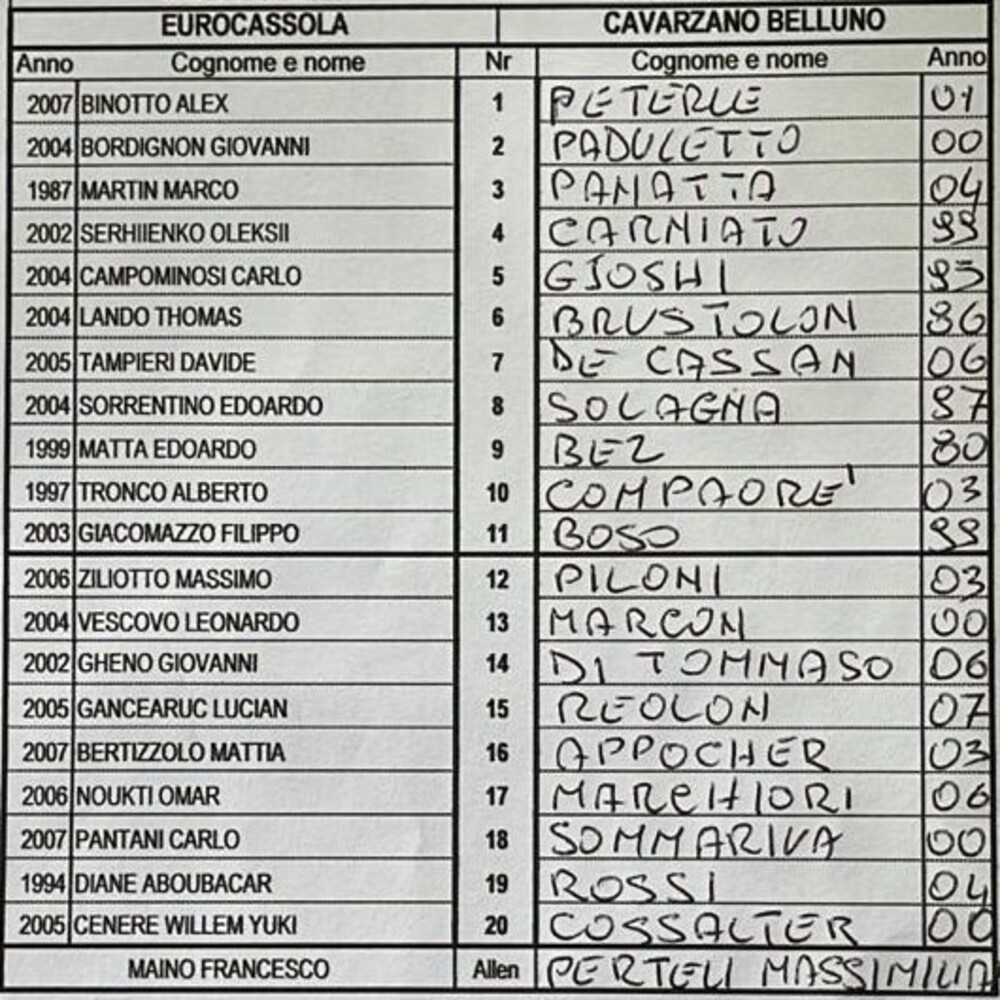 EUROCASSOLA CAVARZANO BELLUNO
Anno Cognome e nome Nr Cognome e nome Anno
2007 BINOTTO ALEX 1 PETERLE 01
2004 BORDIGNON GIOVANNI 2 PADULETTO 00
1987 MARTIN MARCO 3 PANATTA 04
2002 SERHIIENKO OLEKSII 4 CARNIATO 99
2004 CAMPOMINOSI CARLO 5 GJOSHI 95
2004 LANDO THOMAS 6 BRUSTOLON 86
2005 TAMPIERI DAVIDE 7 DE CASSAN 06
2004 SORRENTINO EDOARDO 8 SOLAGNA 87
1999 MATTA EDOARDO 9 BEZ 80
1997 TRONCO ALBERTO 10 COMPAORE' 03
2003 GIACOMAZZO FILIPPO 11 BOSO 99
2006 ZILIOTTO MASSIMO 12 PILONI 03
2004 VESCOVO LEONARDO 13 MARCON 00
2002 GHENO GIOVANNI 14 DI TOMMASO 06
2005 GANCEARUC LUCIAN 15 REOLON 07
2007 BERTIZZOLO MATTIA 16 APPOCHER 03
2006 NOUKTI OMAR 17 MARCHIORI 06
2007 PANTANI CARLO 18 SOMMARIVA 00
1994 DIANE ABOUBACAR 19 ROSSI 04
2005 CENERE WILLEM YUKI 20 COSSALTER 00
MAINO FRANCESCO Allen PERTELI MASSIMILIA